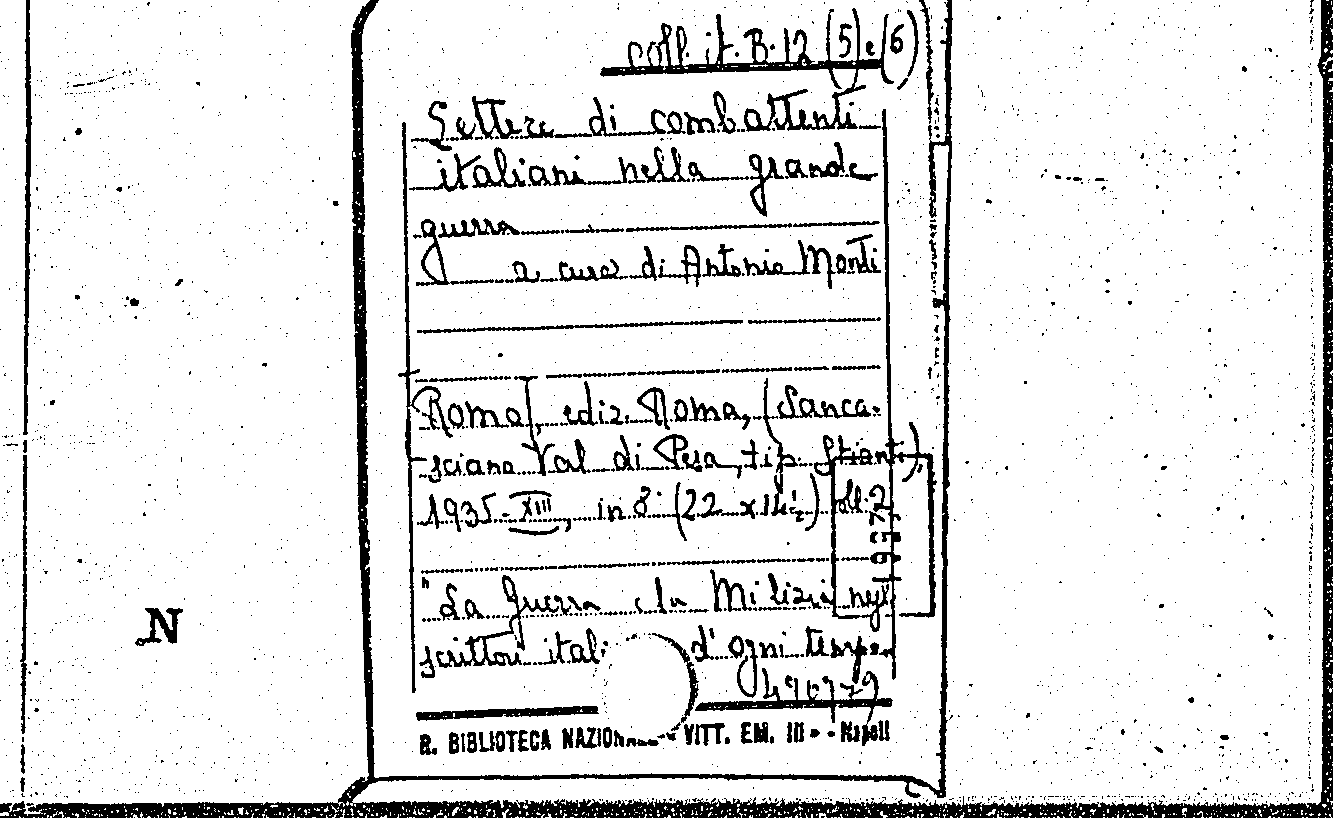 coll. it. B. 12 (5) e (6
Lettere di combattenti
italiani nella grande
guerra
a cura di Antonio Monti
Roma, ediz. Roma, (Sanca-
sciano Val di Pesa, tip. Stianti),
1935-XIII, in 8° (22 x 14½) voll. 2
"La Guerra e la Milizia negli
scrittori itali d'ogni tempo"
490779
R. BIBLIOTECA NAZIONALE « VITT. EM. III » - Napoli
N